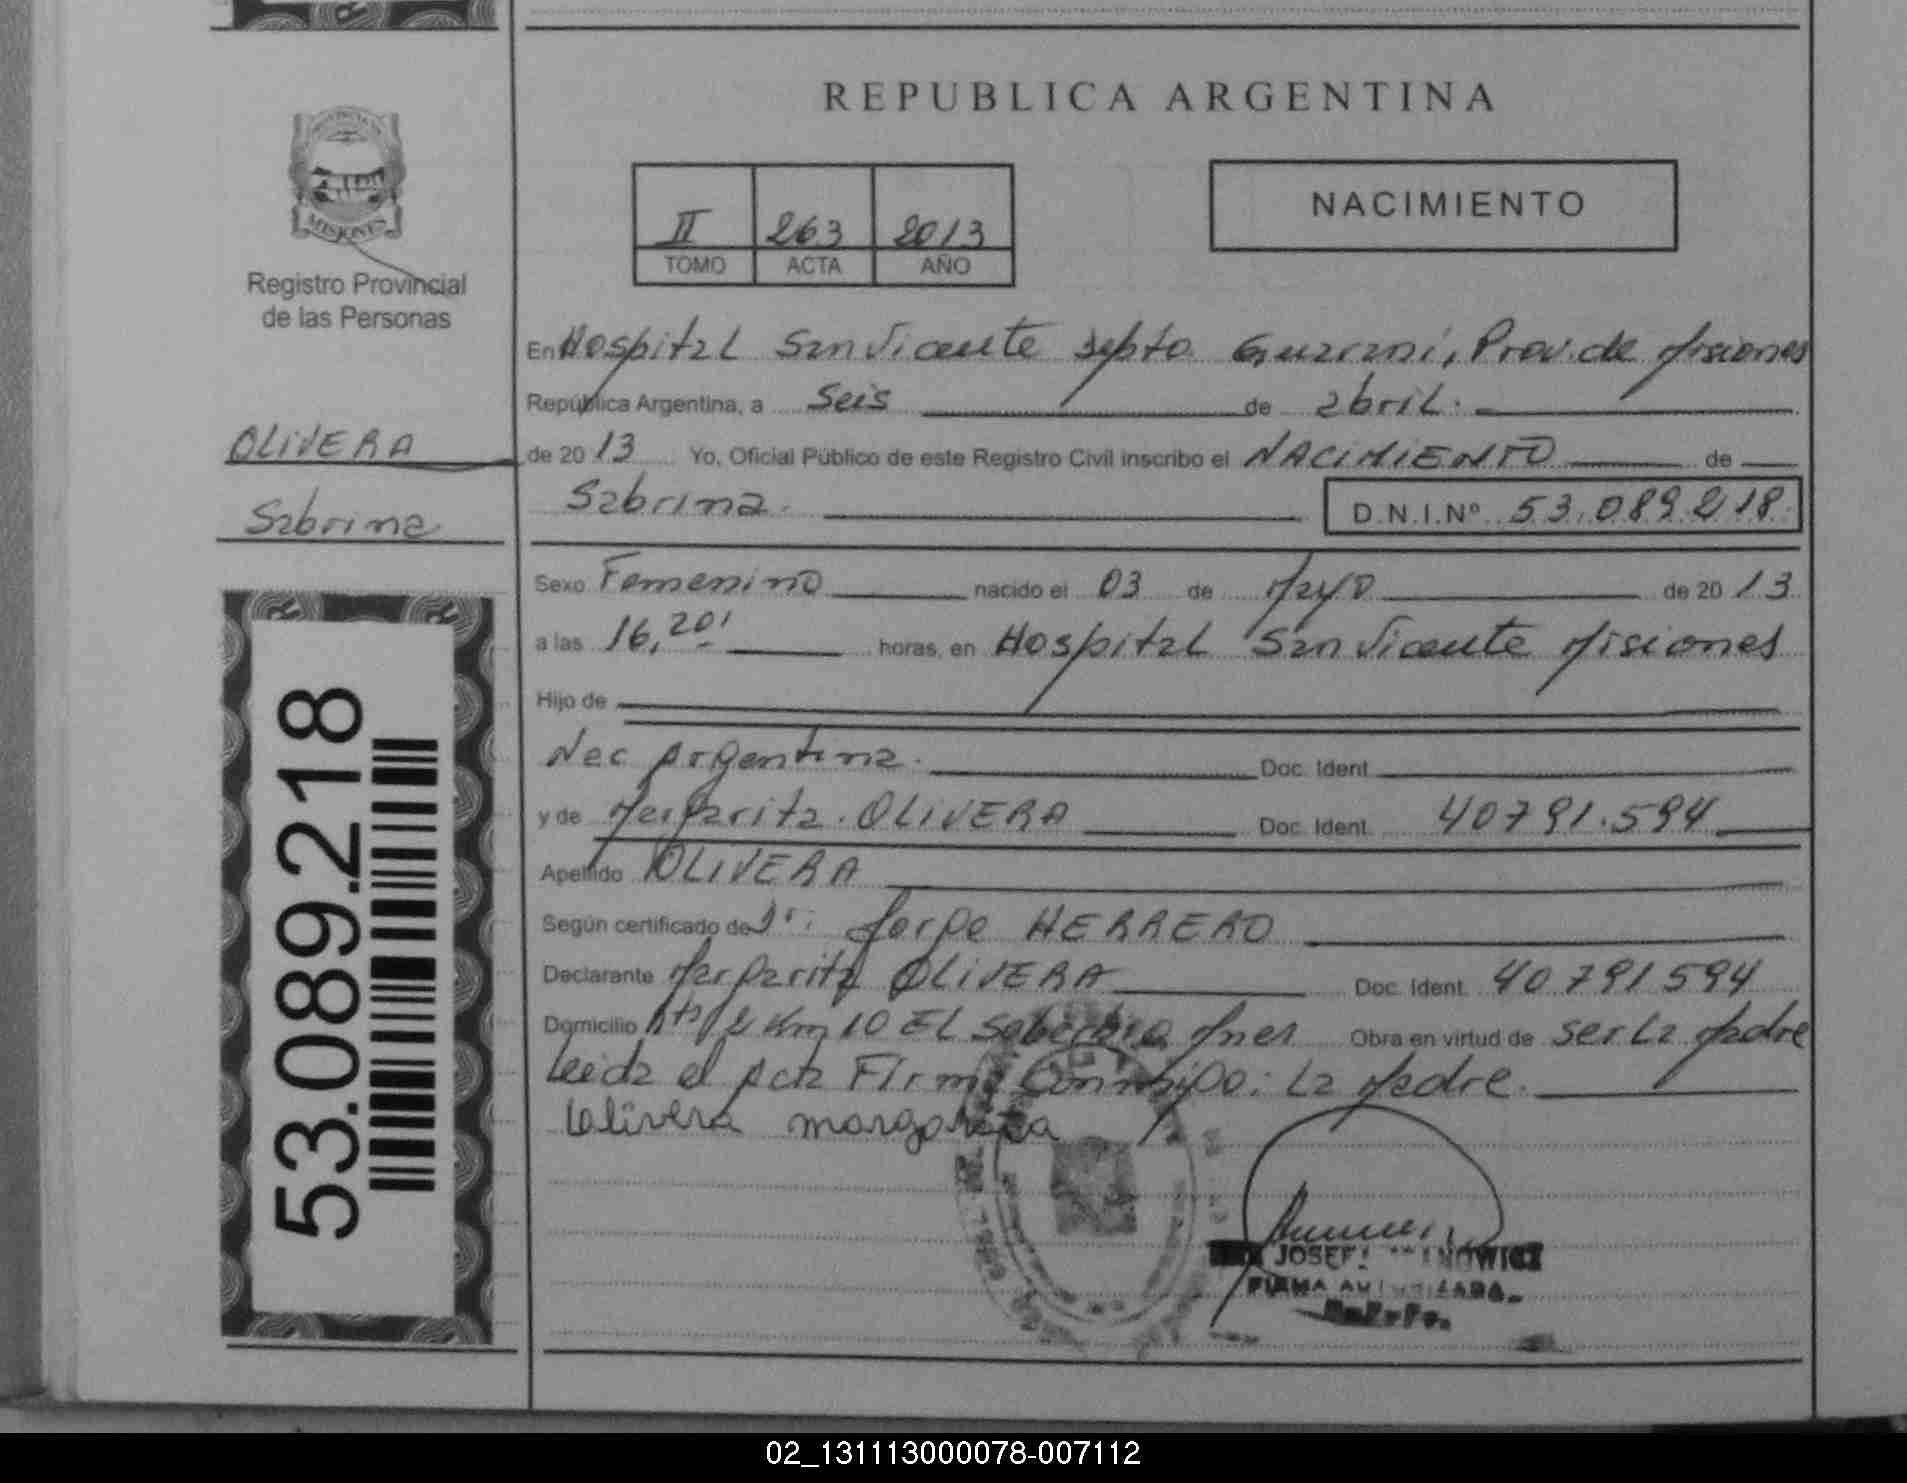 REPUBLICA ARGENTINA
II 263 2013
TOMO ACTA AÑO
NACIMIENTO
MISIONES
Registro Provincial
de las Personas
OLIVERA
Sabrina
53.089.218
En Hospital San Vicente Depto Guarani, Prov. de Misiones
República Argentina, a Seis de abril.
de 2013 Yo, Oficial Público de este Registro Civil inscribo el NACIMIENTO de
Sabrina. D.N.I.Nº 53.089.218
Sexo Femenino nacido el 03 de Mayo de 2013
a las 16,20' horas, en Hospital San Vicente Misiones
Hijo de
Nac Argentina. Doc. Ident.
y de Margarita. OLIVERA Doc. Ident. 40791.594
Apellido OLIVERA
Según certificado de Dr: Jorge HERRERO
Declarante Margarita OLIVERA Doc. Ident. 40791594
Domicilio Km 10 El Soberbio Mnes Obra en virtud de ser la Madre
Leida el Acta Firma Conmigo: La Madre.
Olivera margarita
JOSEF
FIRMA AUTORIZADA
02_131113000078-007112